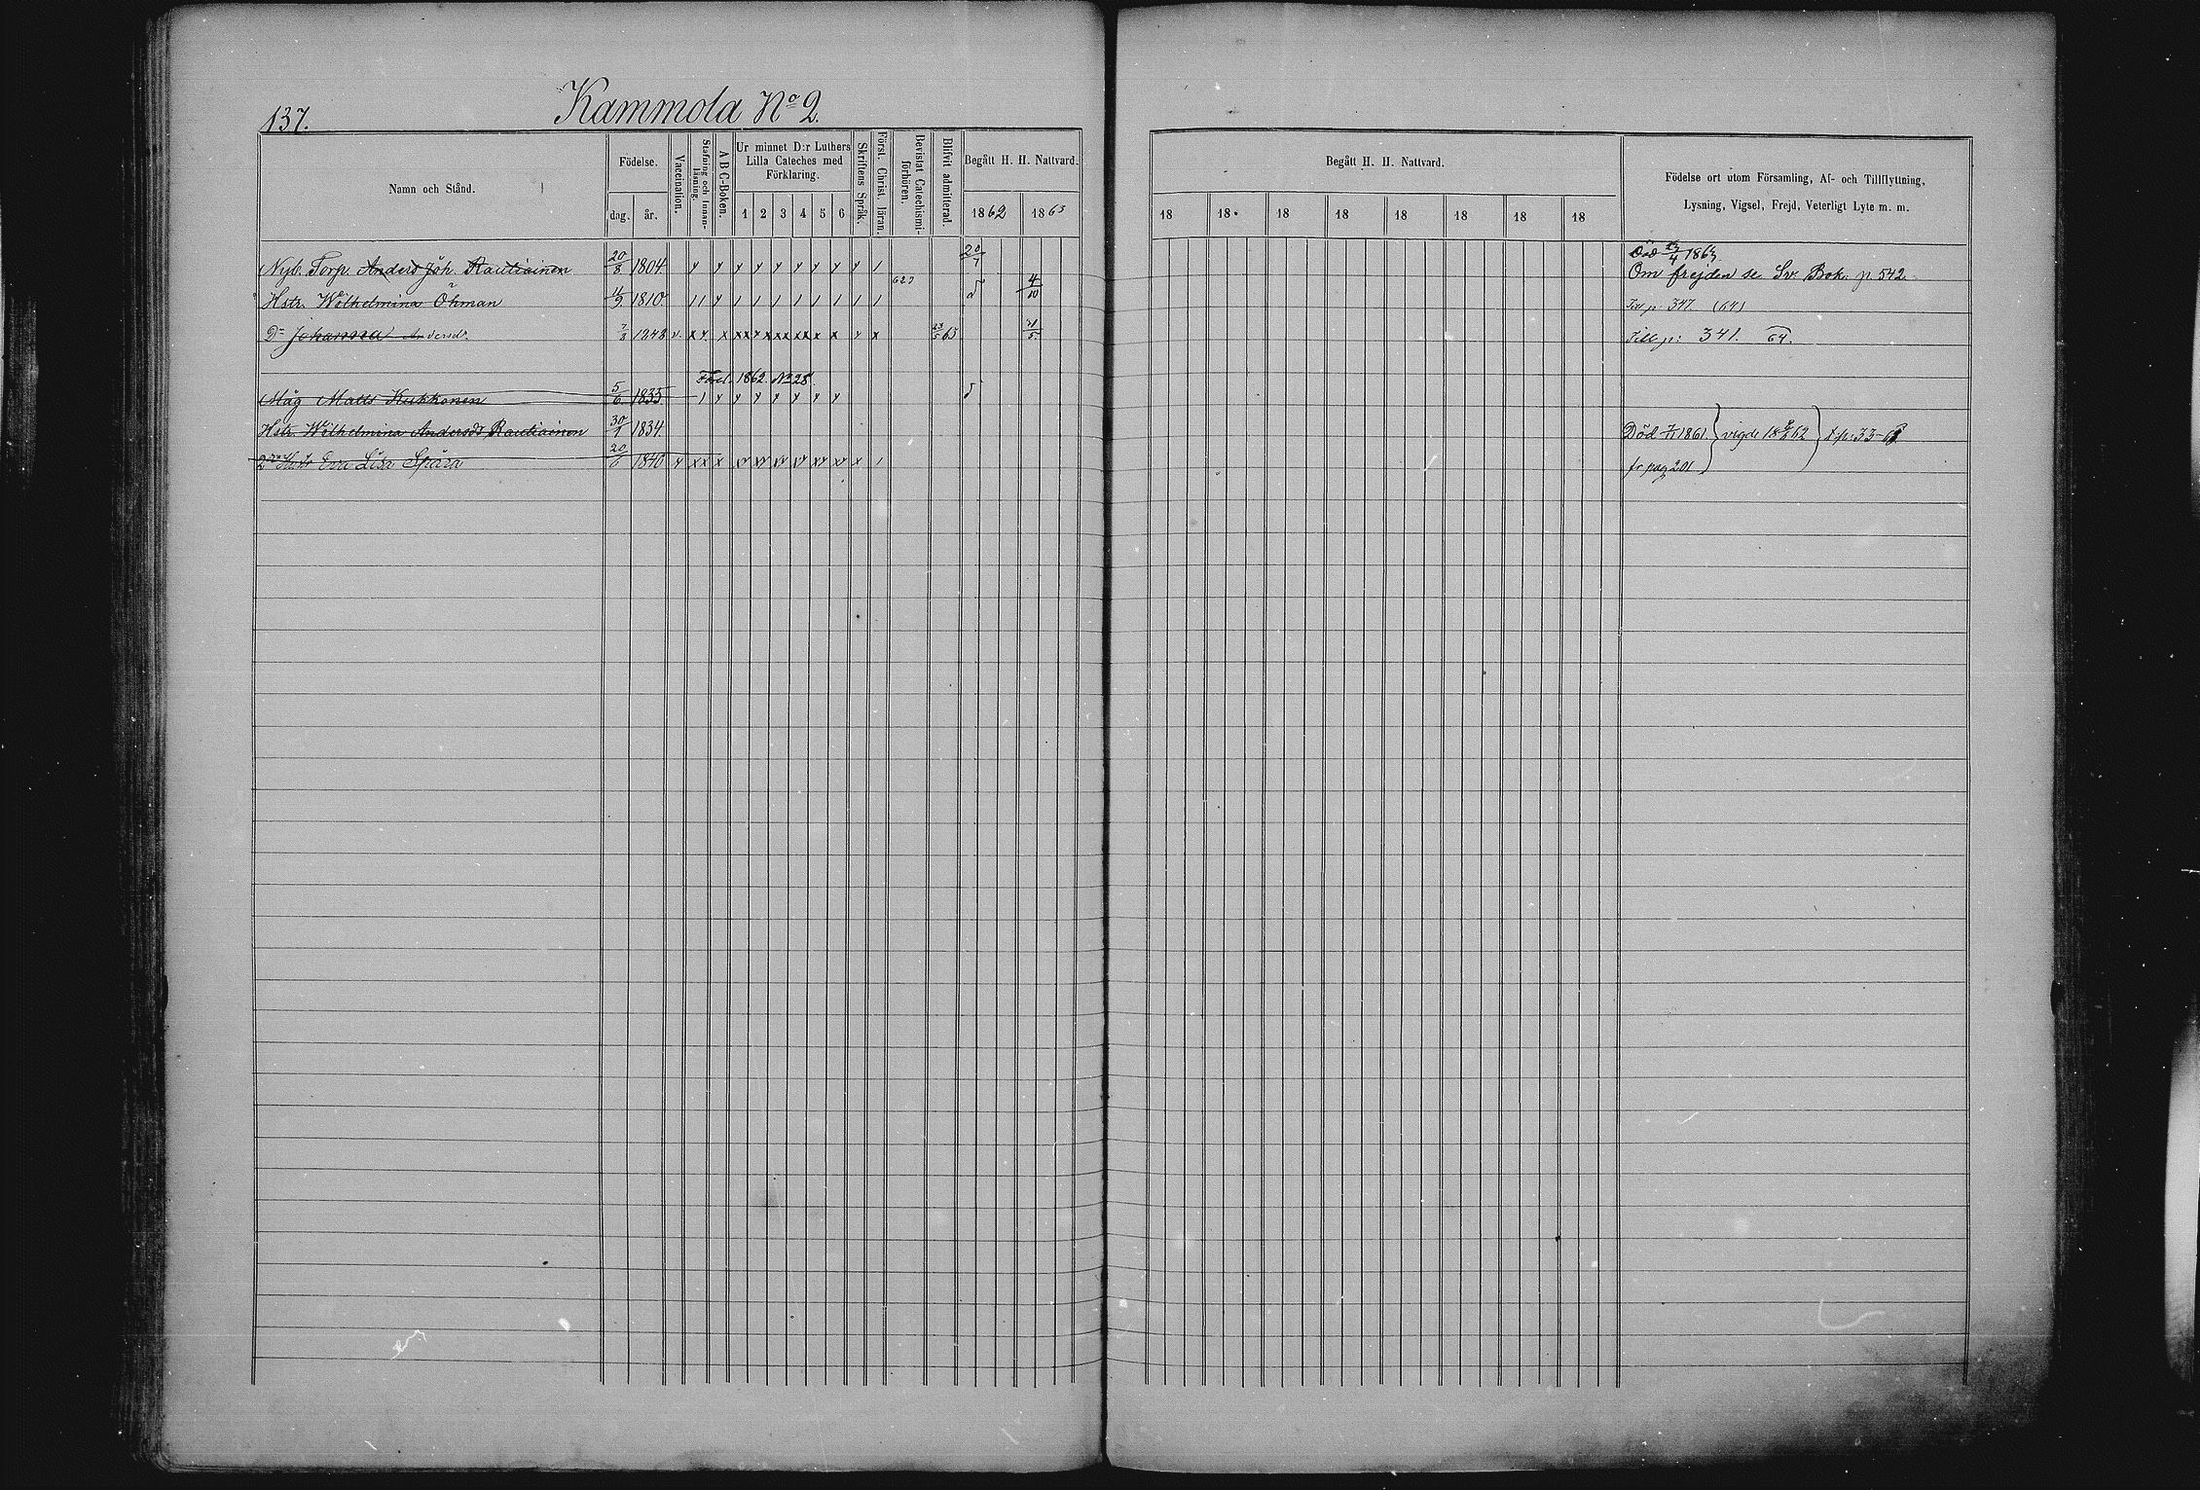 137.
Kammola No 2.
Namn och Stånd.
Födelse.
dag. år.
Vaccination.
Stafning och Innan-läsning.
A B C-Boken.
Ur minnet D:r Luthers
Lilla Cateches med
Förklaring.
1 2 3 4 5 6
Skriftens Språk.
Först. Christ. läran.
Bevistat Catechismi-förhören.
Blifvit admitterad.
Begått H. H. Nattvard.
1862 1863
Begått H. H. Nattvard.
18 18 18 18 18 18 18 18
Födelse ort utom Församling, Af- och Tillflyttning,
Lysning, Vigsel, Frejd, Veterligt Lyte m. m.
Nyb. Torp. Anders Joh. Rautiainen 20/8 1804. y y y y y y y y y 1 20/7 Död /4 1863
Om frejden se Sv. Bok. p. 542
623
Hstr. Wilhelmina Öhman 11/9 1810. 11 y 1 1 1 1 1 1 1 1 4/10 Till p: 347. (64)
Dr Johanna Andersdr. 7/8 1848 v. x y. x xx x xxx xx x x y x 23/5 63 31/5 Till p: 341. 64.
Förel. 1862. No 28.
Måg Matts Kukkonen 5/6 1835 1 y y y y y y y
Hstr. Wilhelmina Andersdr Rautiainen 30/1 1834. Död 7/11 1861. vigde 18 62 t. p: 33-63
2dra Hstr Eva Lisa Spåra 20/6 1840 y xx x xy xy xy xy xy xy x 1 fr pag 201